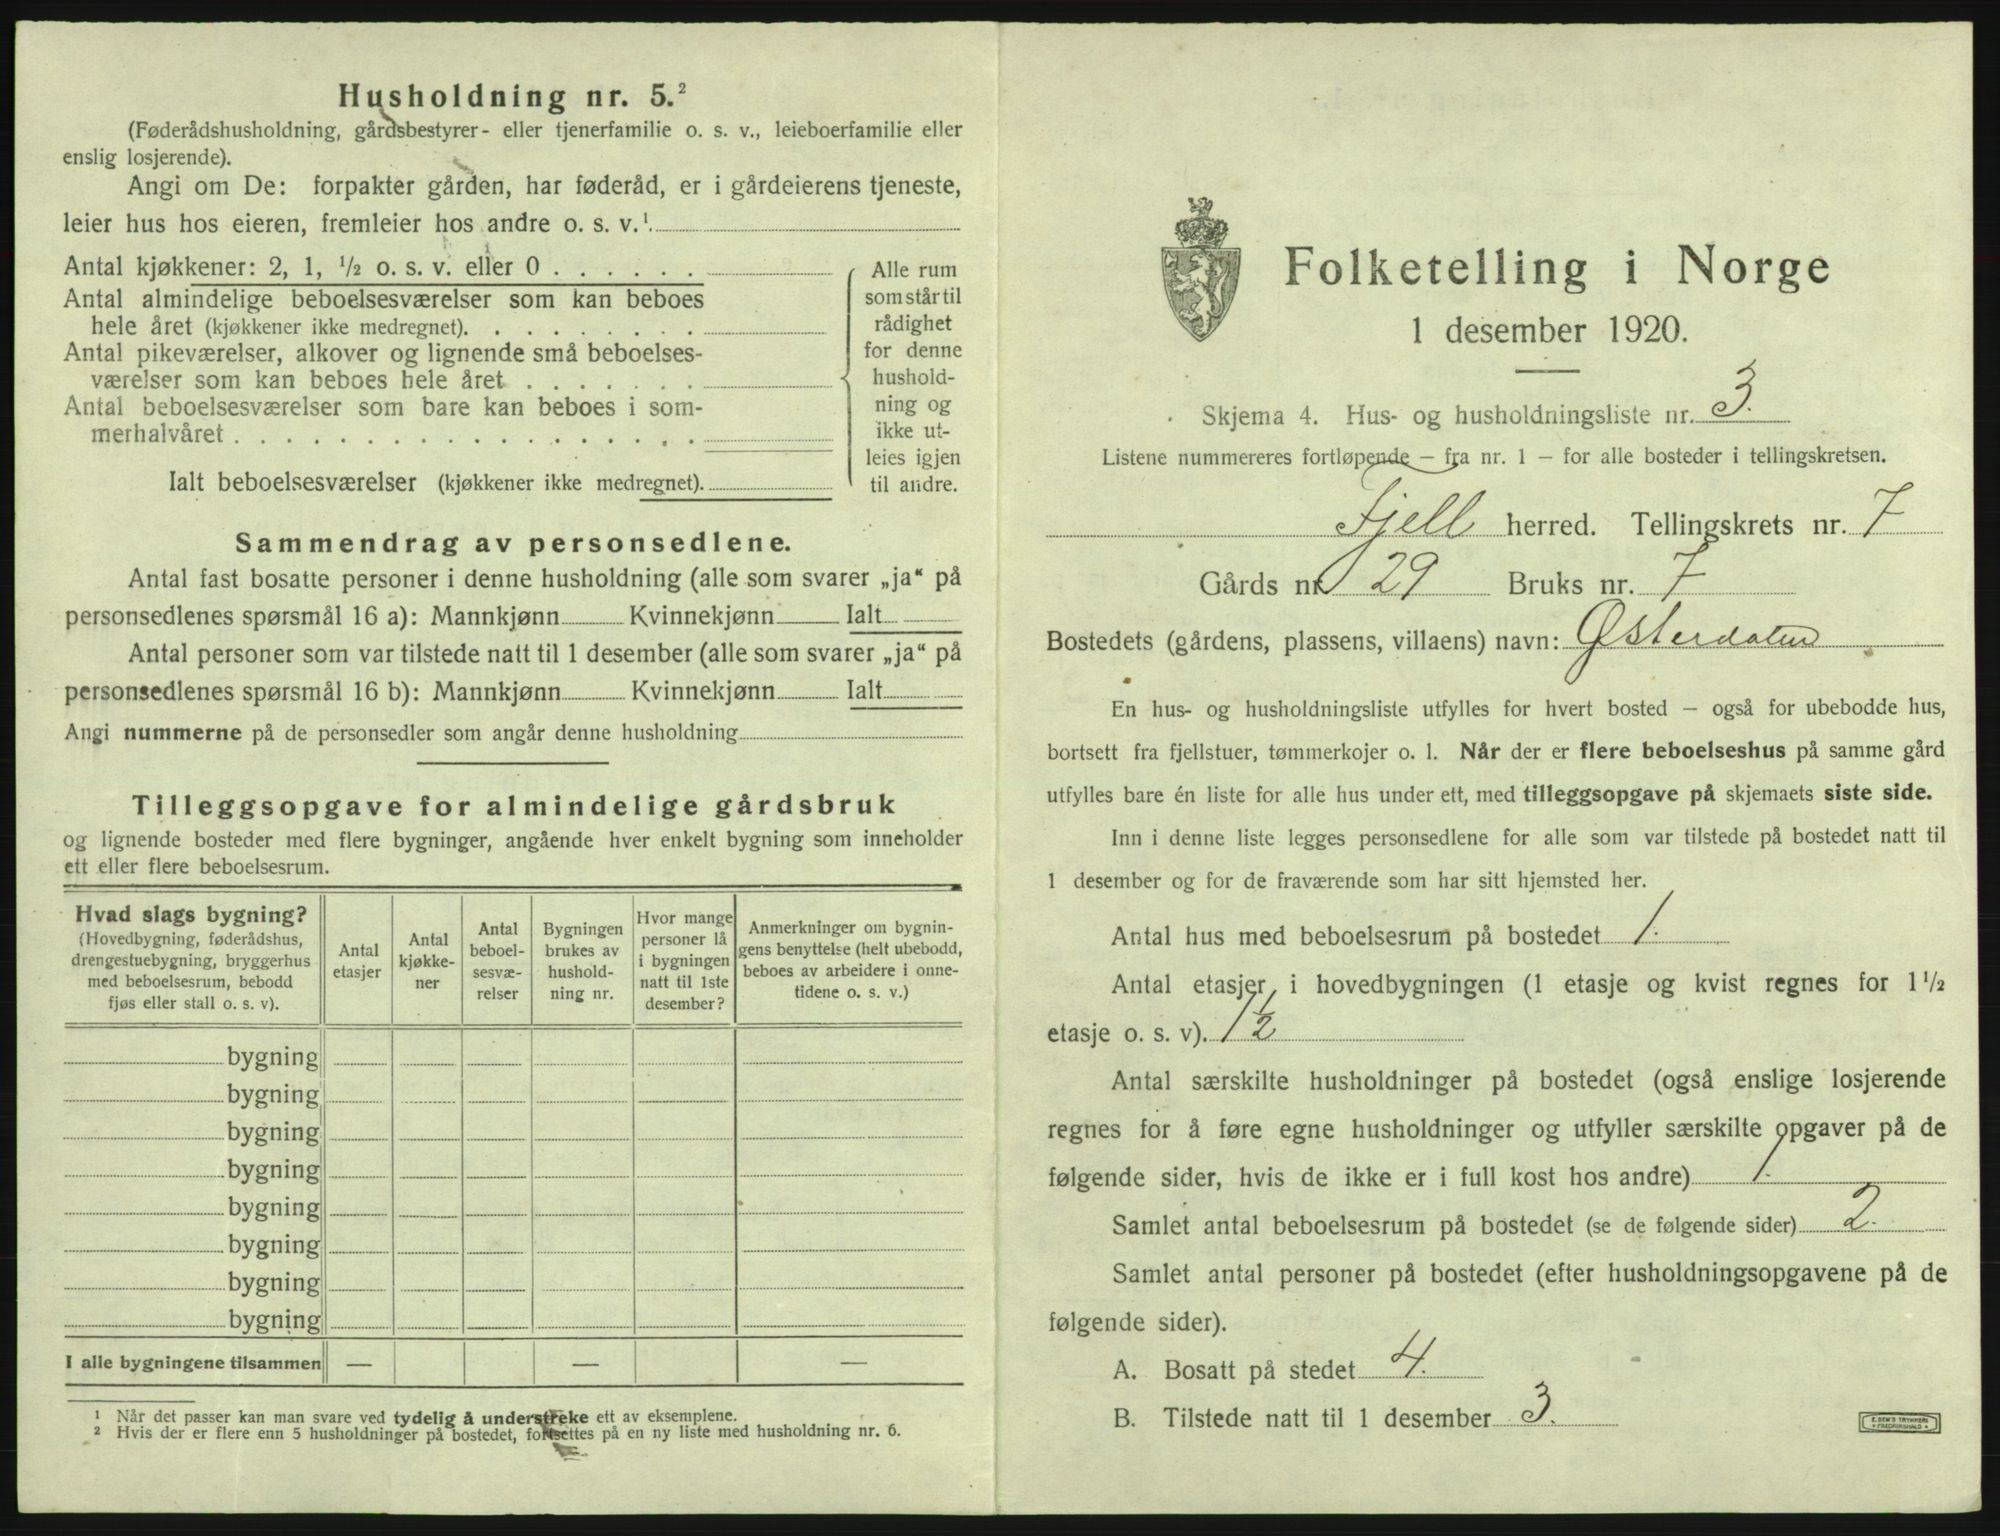 Husholdning nr. 5.²
(Føderådshusholdning, gårdsbestyrer- eller tjenerfamilie o. s. v., leieboerfamilie eller
enslig losjerende).
Angi om De: forpakter gården, har føderåd, er i gårdeierens tjeneste,
leier hus hos eieren, fremleier hos andre o. s. v.¹
Antal kjøkkener: 2, 1, ½ o. s. v. eller 0 . . . . . .
Antal almindelige beboelsesværelser som kan beboes
hele året (kjøkkener ikke medregnet). . . . . . . . .
Antal pikeværelser, alkover og lignende små beboelses-
værelser som kan beboes hele året . . . . . . .
Antal beboelsesværelser som bare kan beboes i som-
merhalvåret . . . . . . . . . . . . . . . . . .
Ialt beboelsesværelser (kjøkkener ikke medregnet).
Alle rum
som står til
rådighet
for denne
hushold-
ning og
ikke ut-
leies igjen
til andre.
Sammendrag av personsedlene.
Antal fast bosatte personer i denne husholdning (alle som svarer „ja“ på
personsedlenes spørsmål 16 a): Mannkjønn Kvinnekjønn Ialt
Antal personer som var tilstede natt til 1 desember (alle som svarer „ja“ på
personsedlenes spørsmål 16 b): Mannkjønn Kvinnekjønn Ialt
Angi nummerne på de personsedler som angår denne husholdning
Tilleggsopgave for almindelige gårdsbruk
og lignende bosteder med flere bygninger, angående hver enkelt bygning som inneholder
ett eller flere beboelsesrum.
Hvad slags bygning?
(Hovedbygning, føderådshus,
drengestuebygning, bryggerhus
med beboelsesrum, bebodd
fjøs eller stall o. s. v).
Antal
etasjer
Antal
kjøkke-
ner
Antal
beboel-
sesvæ-
relser
Bygningen
brukes av
hushold-
ning nr.
Hvor mange
personer lå
i bygningen
natt til 1ste
desember?
Anmerkninger om bygnin-
gens benyttelse (helt ubebodd,
beboes av arbeidere i onne-
tidene o. s. v.)
bygning
bygning
bygning
bygning
bygning
bygning
bygning
bygning
I alle bygningene tilsammen — — —
¹ Når det passer kan man svare ved tydelig å understreke ett av eksemplene.
² Hvis der er flere enn 5 husholdninger på bostedet, fortsettes på en ny liste med husholdning nr. 6.
Folketelling i Norge
1 desember 1920.
Skjema 4. Hus- og husholdningsliste nr. 3.
Listene nummereres fortløpende — fra nr. 1 — for alle bosteder i tellingskretsen.
Fjell herred. Tellingskrets nr. 7
Gårds nr. 29 Bruks nr. 7
Bostedets (gårdens, plassens, villaens) navn: Østerdalen
En hus- og husholdningsliste utfylles for hvert bosted — også for ubebodde hus,
bortsett fra fjellstuer, tømmerkojer o. l. Når der er flere beboelseshus på samme gård
utfylles bare én liste for alle hus under ett, med tilleggsopgave på skjemaets siste side.
Inn i denne liste legges personsedlene for alle som var tilstede på bostedet natt til
1 desember og for de fraværende som har sitt hjemsted her.
Antal hus med beboelsesrum på bostedet 1.
Antal etasjer i hovedbygningen (1 etasje og kvist regnes for 1½
etasje o. s. v). 1½
Antal særskilte husholdninger på bostedet (også enslige losjerende
regnes for å føre egne husholdninger og utfyller særskilte opgaver på de
følgende sider, hvis de ikke er i full kost hos andre) 1.
Samlet antal beboelsesrum på bostedet (se de følgende sider) 2.
Samlet antal personer på bostedet (efter husholdningsopgavene på de
følgende sider).
A. Bosatt på stedet 4.
B. Tilstede natt til 1 desember 3.
E. SEM'S TRYKKERI
FREDRIKSHALD